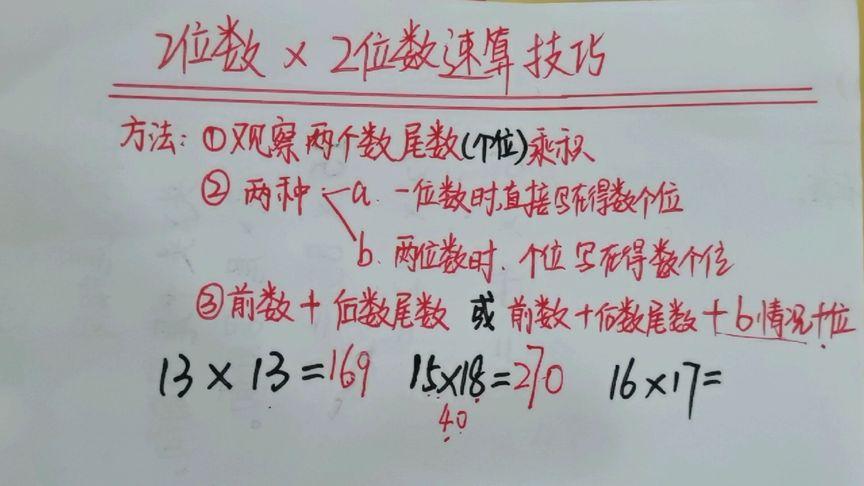 2位数 × 2位数速算技巧
方法: ①观察两个数尾数(个位)乘积
② 两种 a. 一位数时,直接写在得数个位
b. 两位数时. 个位写在得数个位
③前数+后数尾数 或 前数+后数尾数+b情况十位
13×13=169 15×18=270 16×17=
40